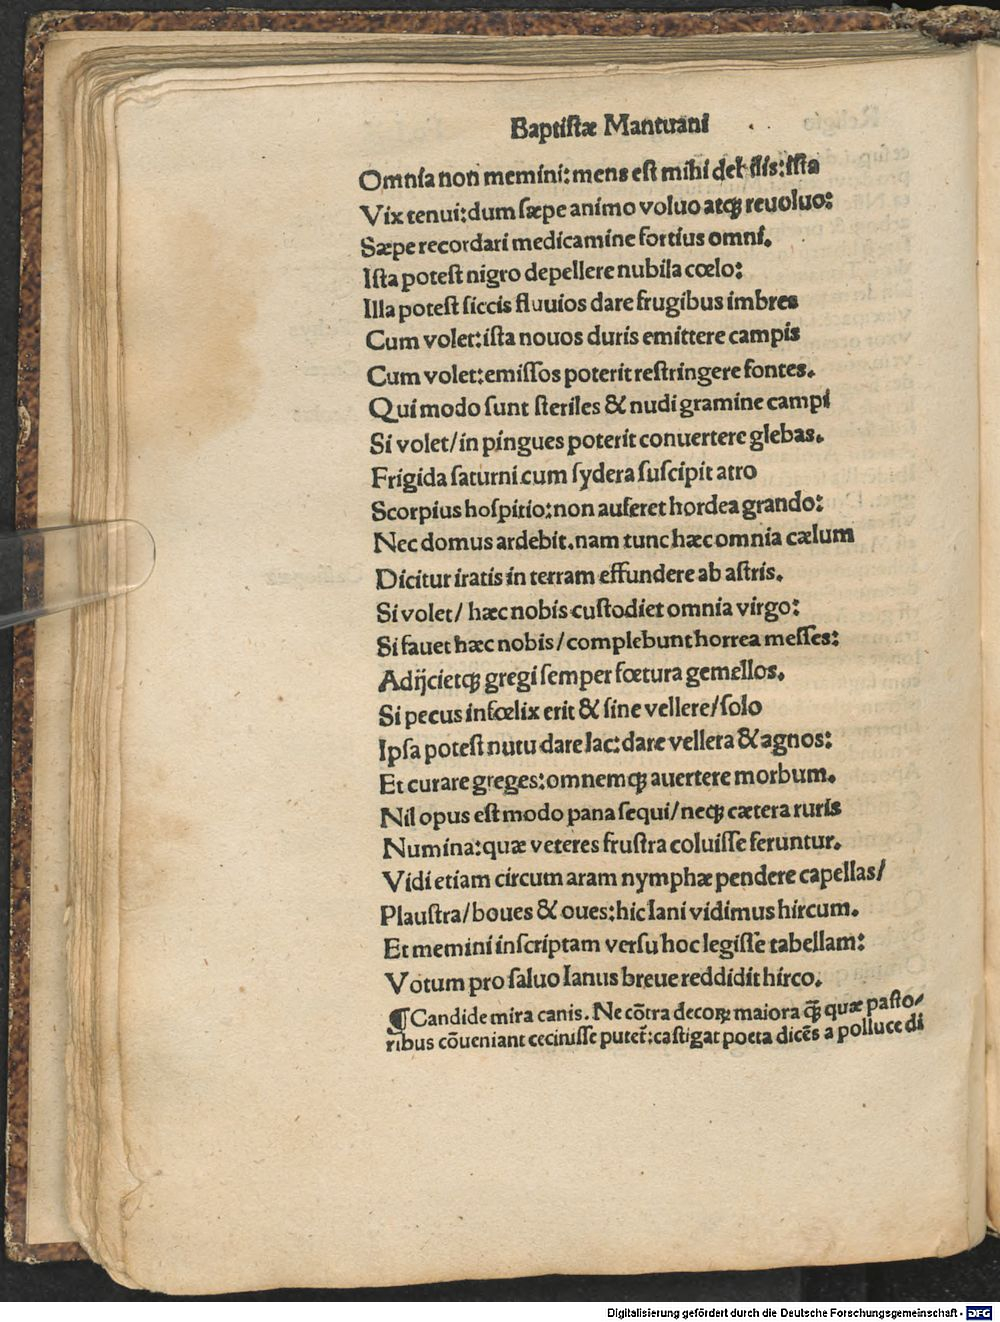 Baptistæ Mantuani
Omnia non memini: mens est mihi debilis: ista
Vix tenui: dum sæpe animo voluo atqꝫ reuoluo:
Sæpe recordari medicamine fortius omni.
Ista potest nigro depellere nubila cœlo:
Illa potest siccis fluuios dare frugibus imbres
Cum volet: ista nouos duris emittere campis
Cum volet: emissos poterit restringere fontes.
Qui modo sunt steriles & nudi gramine campi
Si volet/ in pingues poterit conuertere glebas.
Frigida saturni cum sydera suscipit atro
Scorpius hospitio: non auferet hordea grando:
Nec domus ardebit. nam tunc hæc omnia cælum
Dicitur iratis in terram effundere ab astris.
Si volet/ hæc nobis custodiet omnia virgo:
Si fauet hæc nobis/ complebunt horrea messes:
Adijcietqꝫ gregi semper fœtura gemellos.
Si pecus infœlix erit & sine vellere/ solo
Ipsa potest nutu dare lac: dare vellera & agnos:
Et curare greges: omnemqꝫ auertere morbum.
Nil opus est modo pana sequi/ neqꝫ cætera ruris
Numina: quæ veteres frustra coluisse feruntur.
Vidi etiam circum aram nymphæ pendere capellas/
Plaustra/ boues & oues: hic Iani vidimus hircum.
Et memini inscriptam versu hoc legisse tabellam:
Votum pro saluo Ianus breue reddidit hirco.
¶ Candide mira canis. Ne cōtra decoꝝ maiora qꝫ̄ quæ pasto⸗
ribus cōueniant cecinisse putet᷑: castigat poeta dicēs a polluce di
Digitalisierung gefördert durch die Deutsche Forschungsgemeinschaft - DFG